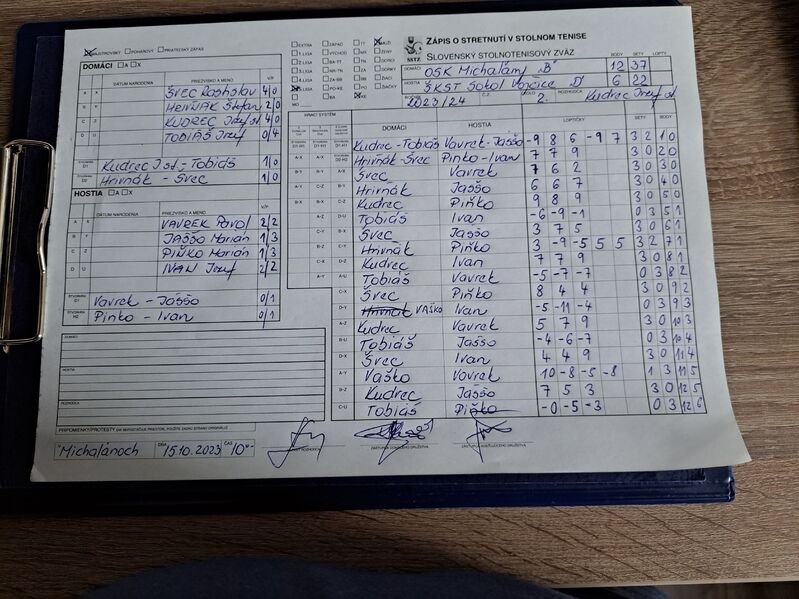 ZÁPIS O STRETNUTÍ V STOLNOM TENISE
SLOVENSKÝ STOLNOTENISOVÝ ZVÄZ
SSTZ
MAJSTROVSKÝ POHÁROVÝ PRIATEĽSKÝ ZÁPAS
BODY SETY LOPTY
DOMÁCI OŠK Michaľany "B" 12 37
HOSTIA ŠKST Sokol Vojčice 6 22
2023/24 2. ROZHODCA Kudrec Jozef st
DOMÁCI A X
DÁTUM NARODENIA PRIEZVISKO A MENO V/P
A X ŠVEC Rastislav 4/0
B Y HRIVŇÁK Štefan 2/0
C Z KUDREC Jozef st 4/0
D U TOBIÁŠ Jozef 0/4
Kudrec J st - Tobiáš 1/0
Hrivňák - Švec 1/0
HOSTIA A X
DÁTUM NARODENIA PRIEZVISKO A MENO V/P
A X VAVREK Pavol 2/2
B Y JAŠŠO Marián 1/3
C Z PIŇKO Marián 1/3
D U IVAN Jozef 2/2
Vavrek - Jaššo 0/1
Piňko - Ivan 0/1
DOMÁCI
HOSTIA
ROZHODCA
HRACÍ SYSTÉM DOMÁCI HOSTIA LOPTIČKY SETY BODY
Kudrec-Tobiáš Vavrek-Jaššo -9 8 6 -9 7 3 2 1 0
Hrivňák-Švec Piňko-Ivan 7 7 9 3 0 2 0
A-X Švec Vavrek 7 6 2 3 0 3 0
Hrivňák Jaššo 6 6 7 3 0 4 0
Kudrec Piňko 9 8 9 3 0 5 0
D-U Tobiáš Ivan -6 -9 -1 0 3 5 1
Švec Jaššo 3 7 5 3 0 6 1
Hrivňák Piňko 3 -9 -5 5 5 3 2 7 1
Kudrec Ivan 7 7 9 3 0 8 1
Tobiáš Vavrek -5 -7 -7 0 3 8 2
C-X Švec Piňko 8 4 4 3 0 9 2
D-Y Hrivňák VAŠKO Ivan -5 -11 -4 0 3 9 3
A-Z Kudrec Vavrek 5 7 9 3 0 10 3
B-U Tobiáš Jaššo -4 -6 -7 0 3 10 4
D-X Švec Ivan 4 4 9 3 0 11 4
A-Y Vaško Vavrek 10 -8 -5 -8 1 3 11 5
B-Z Kudrec Jaššo 7 5 3 3 0 12 5
C-U Tobiáš Piňko -0 -5 -3 0 3 12 6
PRIPOMIENKY/PROTESTY
Michaľanoch DŇA 15.10.2023 ČAS 10